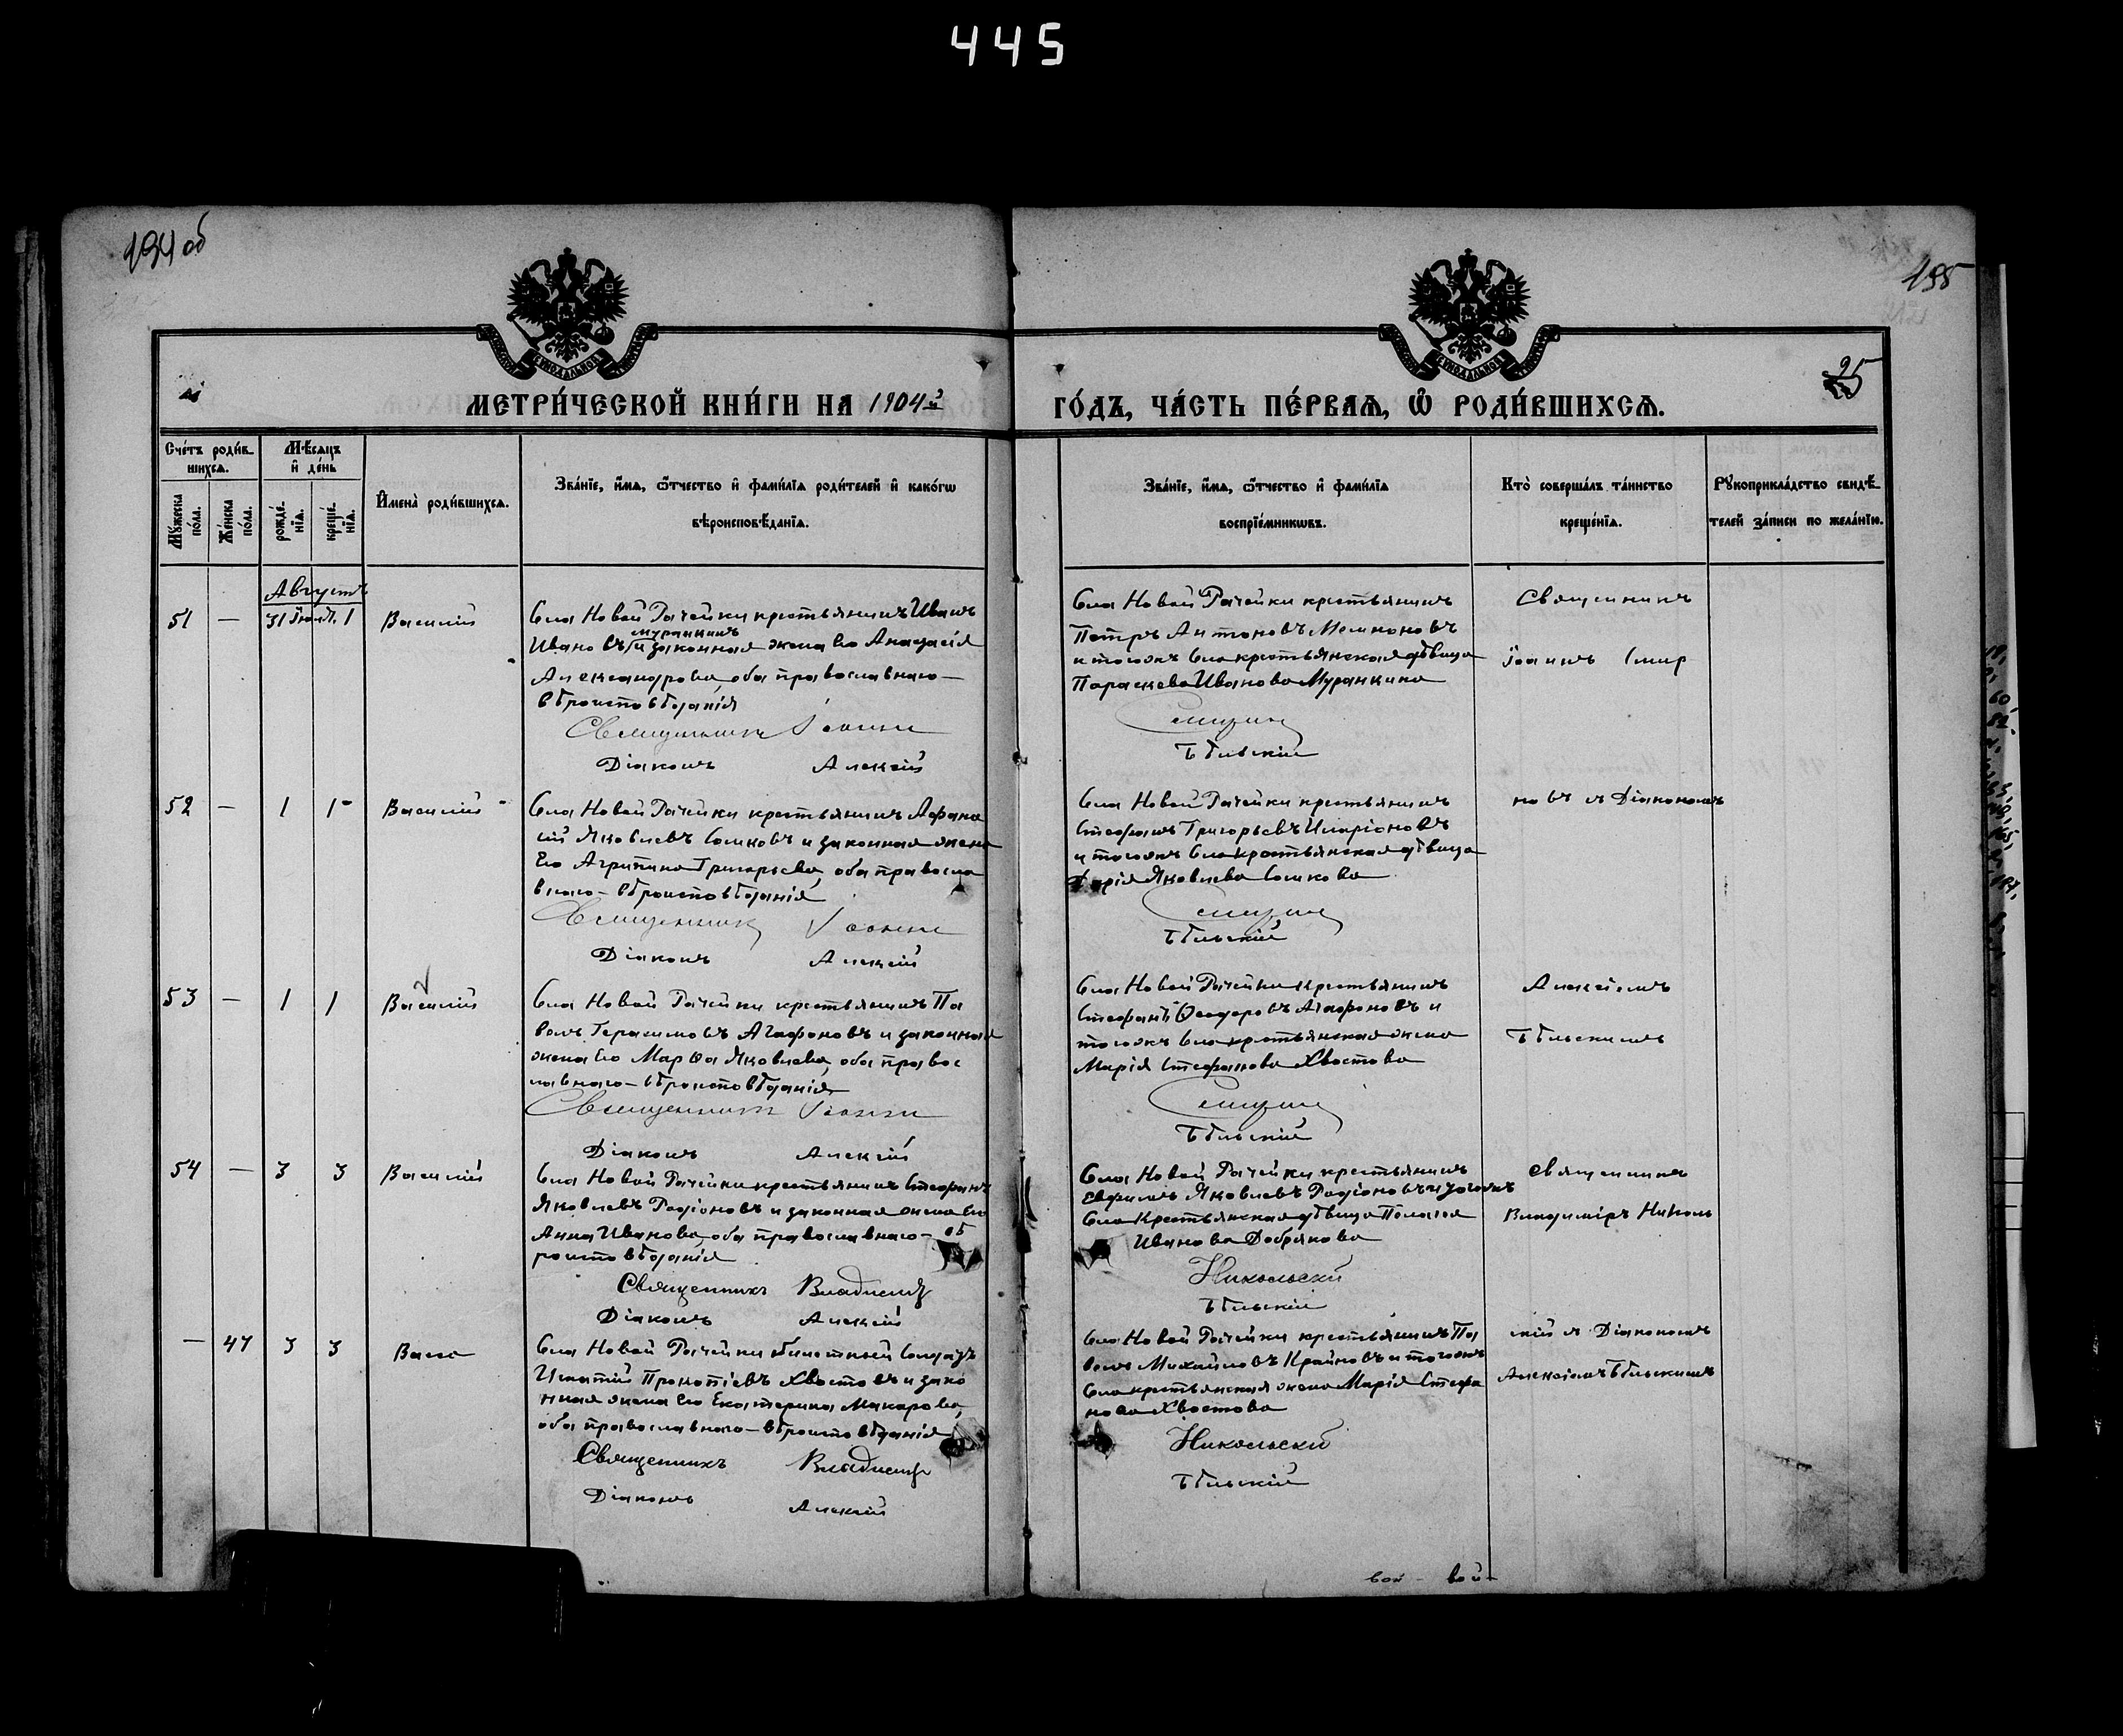 445
194 об
195
25
МЕТРИ́ЧЕСКОЙ КНИ́ГИ НА 1904й
ГО́ДЪ, ЧА́СТЬ ПЕ́РВАѦ, Ѡ РОДИ́ВШИХСѦ.
Сче́тъ роди́в-
шихсѧ.
Мꙋ́жеска
по́ла.
Же́нска
по́ла.
Мѣ́сѧцъ
и҆ де́нь
рожде́-
нїѧ.
креще́-
нїѧ.
И҆мена̀ роди́вшихсѧ.
Зва́нїе, и҆́мѧ, ѻ҆́тчество и҆ фами́лїѧ роди́телей и҆ како́гѡ
вѣроисповѣ́данїѧ.
Зва́нїе, и҆́мѧ, ѻ҆́тчество и҆ фами́лїѧ
воспрїе́мникѡвъ.
Кто̀ соверша́лъ та́инство
креще́нїѧ.
Рꙋкоприкла́дство свидѣ́-
телей за́писи по жела́нїю.
Августъ
51 — 31 Іюля. 1 Василій
Села Новой Рачейки крестьянинъ Иванъ
Муранкинъ
Ивановъ и законная жена его Анастасія
Александрова, оба православнаго
вѣроисповѣданія
Священникъ Іоаннъ
Діаконъ Алексій
Села Новой Рачейки крестьянинъ
Петръ Антоновъ
и тогоже села крестьянская дѣвица
Параскева Иванова Муранкина
Смирнов
Бѣльскій
Священникъ
Іоаннъ Смир
52 — 1 1 Василій
Села Новой Рачейки крестьянинъ Афана
сій Яковлевъ и законная жена
его Агрипина Григорьева, оба правосла
внаго вѣроисповѣданія
Священникъ Іоаннъ
Діаконъ Алексій
Села Новой Рачейки крестьянинъ
Стефанъ Григорьевъ Иларіоновъ
и тогоже села крестьянская дѣвица
Дарія Яковлева
Смирнов
Бѣльскій
новъ съ Діакономъ
53 — 1 1 Василій
Села Новой Рачейки крестьянинъ Па
велъ Герасимовъ Агафоновъ и законная
жена его Марѳа Яковлева, оба правос
лавнаго вѣроисповѣданія
Священникъ Іоаннъ
Діаконъ Алексій
Села Новой Рачейки крестьянинъ
Стефанъ Ѳеодоровъ Агафоновъ и
тогоже села крестьянская жена
Марія Стефанова Хвостова
Смирнов
Бѣльскій
Алексіемъ
Бѣльскимъ
54 — 3 3 Василій
Села Новой Рачейки крестьянинъ Стефанъ
Яковлевъ Родіоновъ и законная жена его
Анна Иванова, оба православнаго вѣ
роисповѣданія
Священникъ Владиміръ
Діаконъ Алексій
Села Новой Рачейки крестьянинъ
Евфимъ Яковлевъ Родіоновъ и тогоже
села крестьянская дѣвица Пелагія
Иванова Добрякова
Никольскій
Бѣльскій
Священникъ
Владиміръ Николь
— 47 3 3 Васса
Села Новой Рачейки билетный солдатъ
Игнатій Прокопіевъ Хвостовъ и зако
нная жена его Екатерина Макарова,
оба православнаго вѣроисповѣданія
Священникъ Владиміръ
Діаконъ Алексій
Села Новой Рачейки крестьянинъ Па
велъ Михайловъ Крайновъ и тогоже
села крестьянская жена Марія Стефа
нова Хвостова
Никольскій
Бѣльскій
скій съ Діакономъ
Алексіемъ Бѣльскимъ
вой - вой -